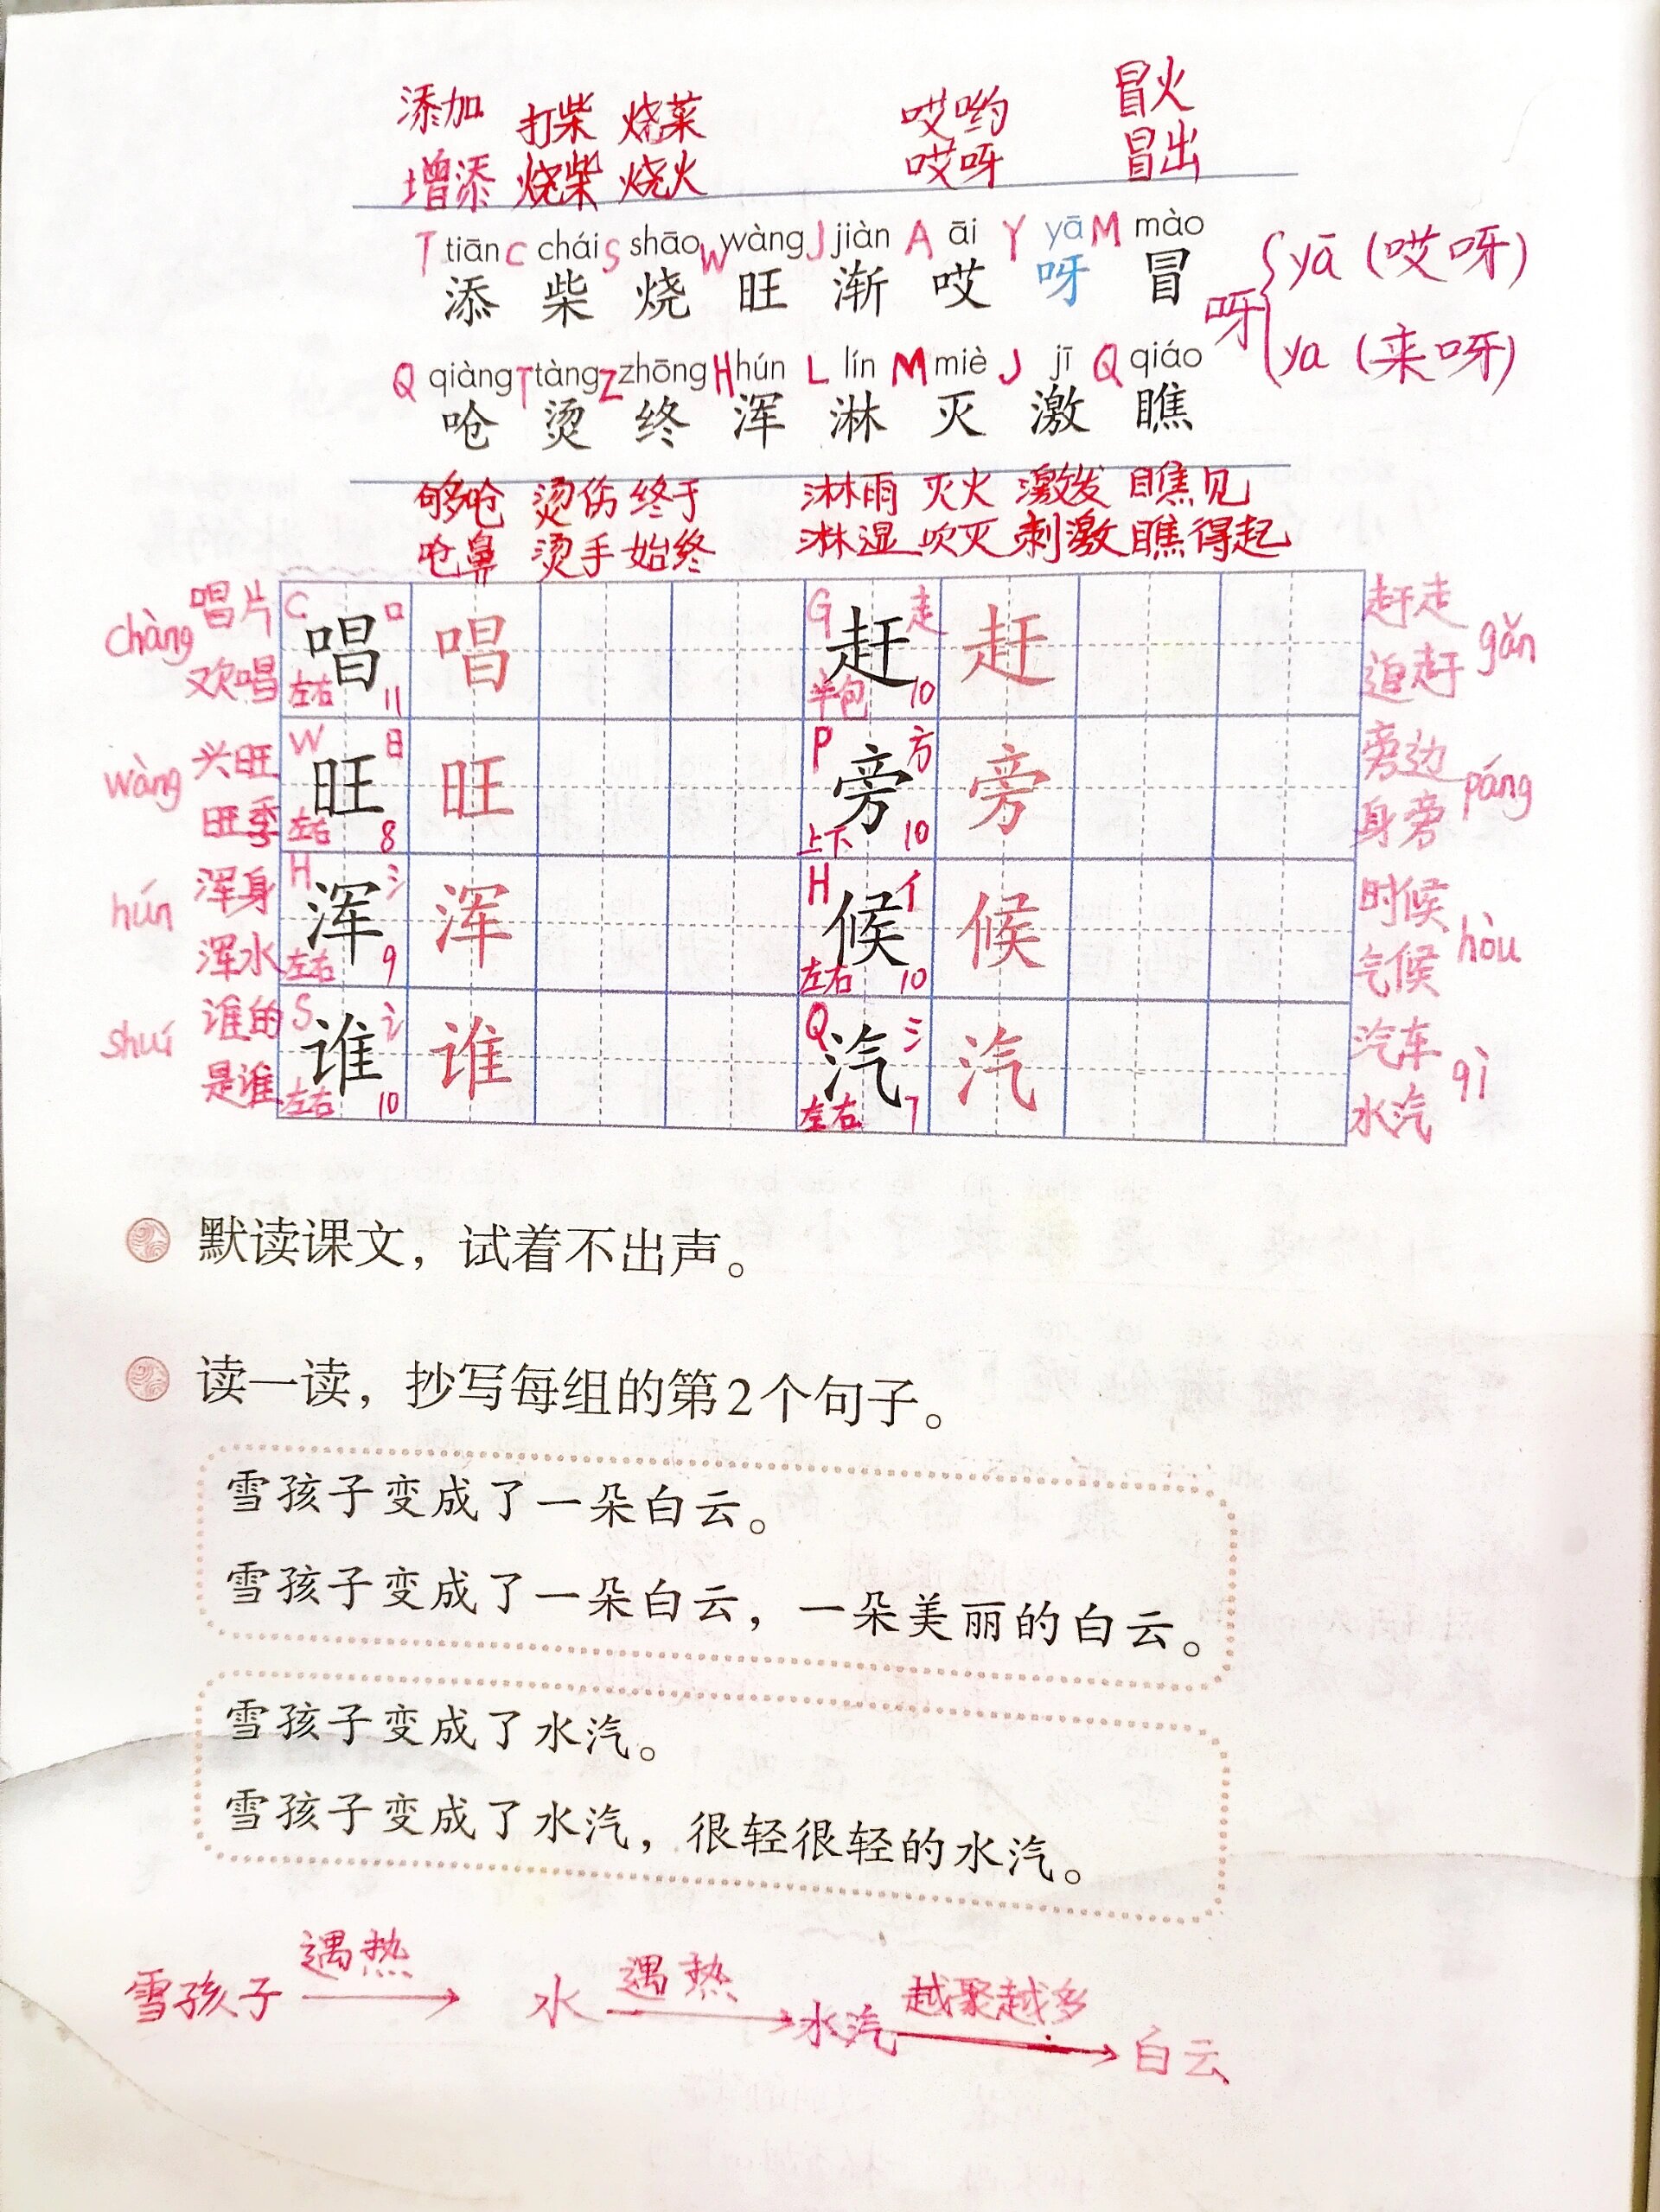 添加 打柴 烧菜 哎哟 冒火
增添 烧柴 烧火 哎呀 冒出
T tiān C chái S shāo W wàng J jiàn A āi Y yā M mào
添 柴 烧 旺 渐 哎 呀 冒
呀 yā (哎呀)
ya (来呀)
Q qiàng T tàng Z zhōng H hún L lín M miè J jī Q qiáo
呛 烫 终 浑 淋 灭 激 瞧
够呛 烫伤 终于 淋雨 灭火 激发 瞧见
呛鼻 烫手 始终 淋湿 吹灭 刺激 瞧得起
chàng 唱片 欢唱 C 口 唱 左右 11 唱 G 走 赶 半包 10 赶 赶走 追赶 gǎn
wàng 兴旺 旺季 W 日 旺 左右 8 旺 P 方 旁 上下 10 旁 旁边 身旁 páng
hún 浑身 浑水 H 氵 浑 左右 9 浑 H 亻 候 左右 10 候 时候 气候 hòu
shuí 谁的 是谁 S 讠 谁 左右 10 谁 Q 氵 汽 左右 7 汽 汽车 水汽 qì
默读课文，试着不出声。
读一读，抄写每组的第2个句子。
雪孩子变成了一朵白云。
雪孩子变成了一朵白云，一朵美丽的白云。
雪孩子变成了水汽。
雪孩子变成了水汽，很轻很轻的水汽。
雪孩子 遇热→ 水 遇热→ 水汽 越聚越多→ 白云